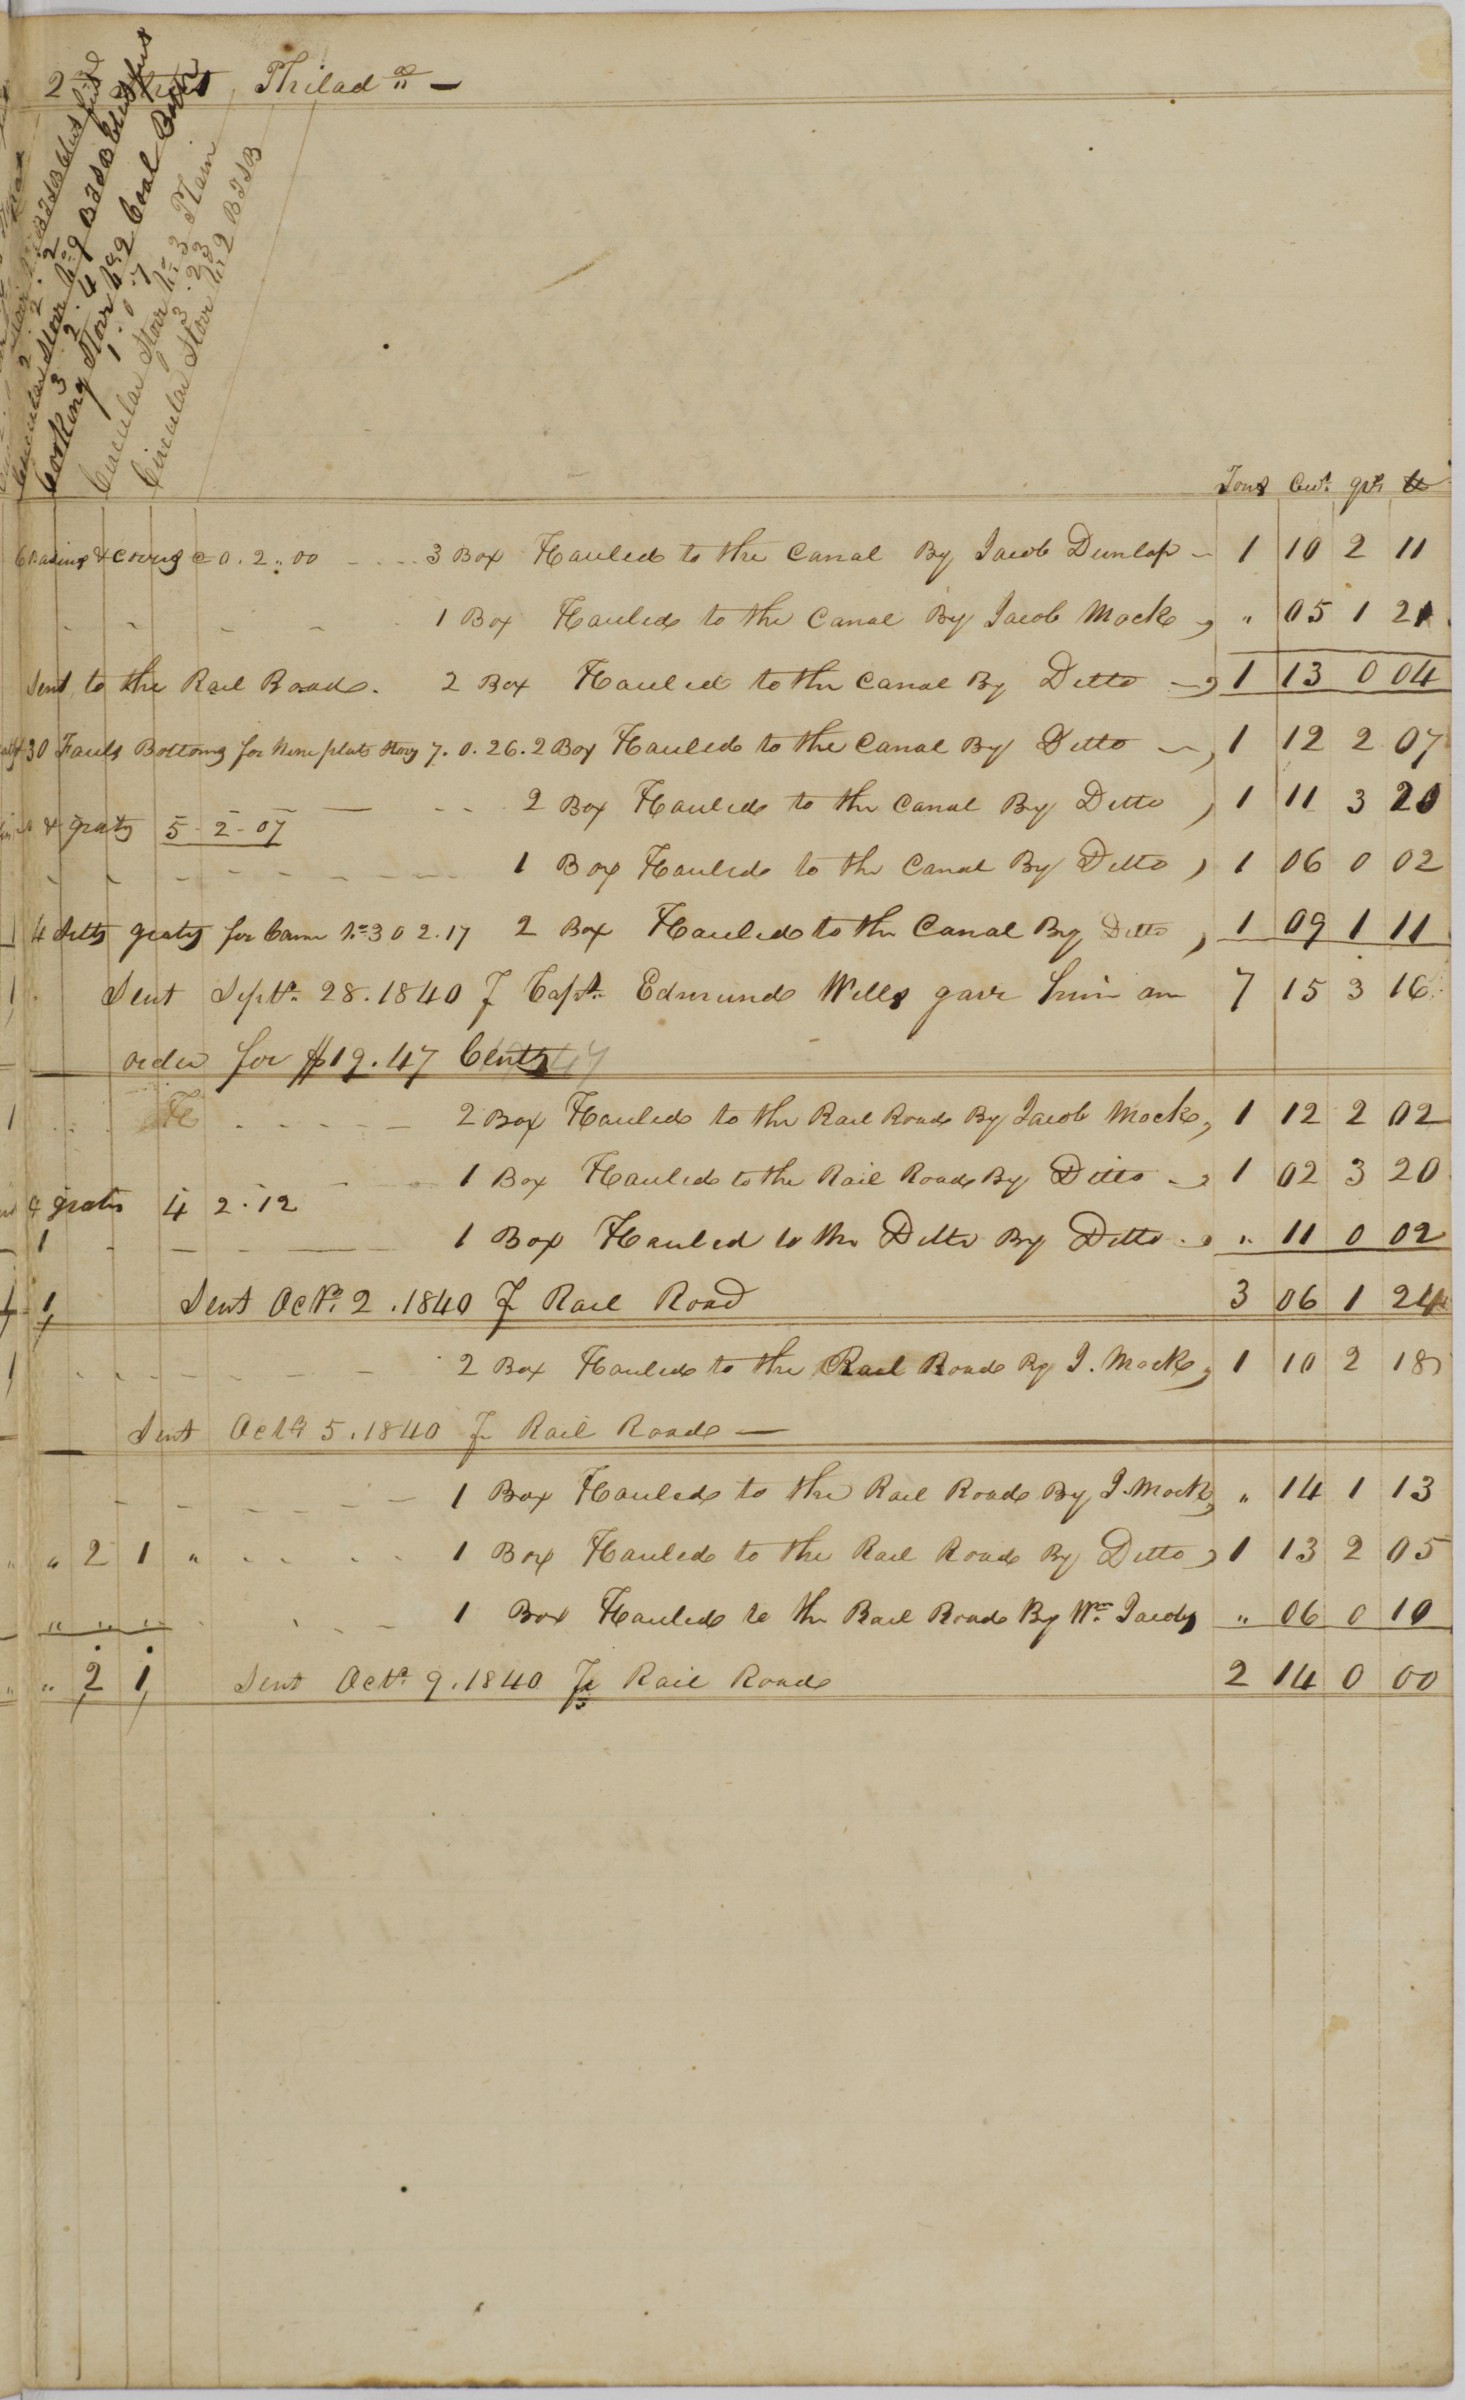 2 Philad<sup>a</sup> —
Circular Stove No 9 B T d B
3 2 4
Cooking Stove No 2 Coal
1 . 0 . 7
Circular Stove No 3 Plain
3 . 23
Circular Stove No 2 B T d B
Tons Cwt. qrs lb
Casings & Covers 0 . 2 . 00 - - - - 3 Box Hauled to the Canal By Jacob Dunlap - 1 10 2 11
1 Box Hauled to the Canal By Jacob Mock , " 05 1 21
Sent to the Rail Road. 2 Box Hauled to the Canal By Ditto — , 1 13 0 04
30 Bottoms for Nine plate Stovs 7 . 0 . 26 . 2 Box Hauled to the Canal By Ditto — , 1 12 2 07
2 Box Hauled to the Canal By Ditto , 1 11 3 20
& grats 5 - 2 - 07
1 Box Hauled to the Canal By Ditto , 1 06 0 02
4 Setts grats for No 3 0 2 . 17 2 Box Hauled to the Canal By Ditto , 1 09 1 11
Sent Septr. 28 . 1840 Capt. Edmund Wells gave him an 7 15 3 16
order for $19 . 47 Cents
2 Box Hauled to the Rail Road By Jacob Mock , 1 12 2 02
1 Box Hauled to the Rail Road By Ditto - , 1 02 3 20
& grats 4 2 . 12
1 1 Box Hauled to the Ditto By Ditto . , " 11 0 02
1 Sent Octr. 2 . 1840 Rail Road 3 06 1 24
1 2 Box Hauled to the Rail Road By J. Mock , 1 10 2 18
Sent Octr 5 . 1840 Rail Road —
1 Box Hauled to the Rail Road By J. Mock , " 14 1 13
" " 2 1 " 1 Box Hauled to the Rail Road By Ditto , 1 13 2 05
" " " 1 Box Hauled to the Rail Road By Wm. Jacoby " 06 0 10
" " 2 1 Sent Octr. 9 . 1840 Rail Road 2 14 0 00